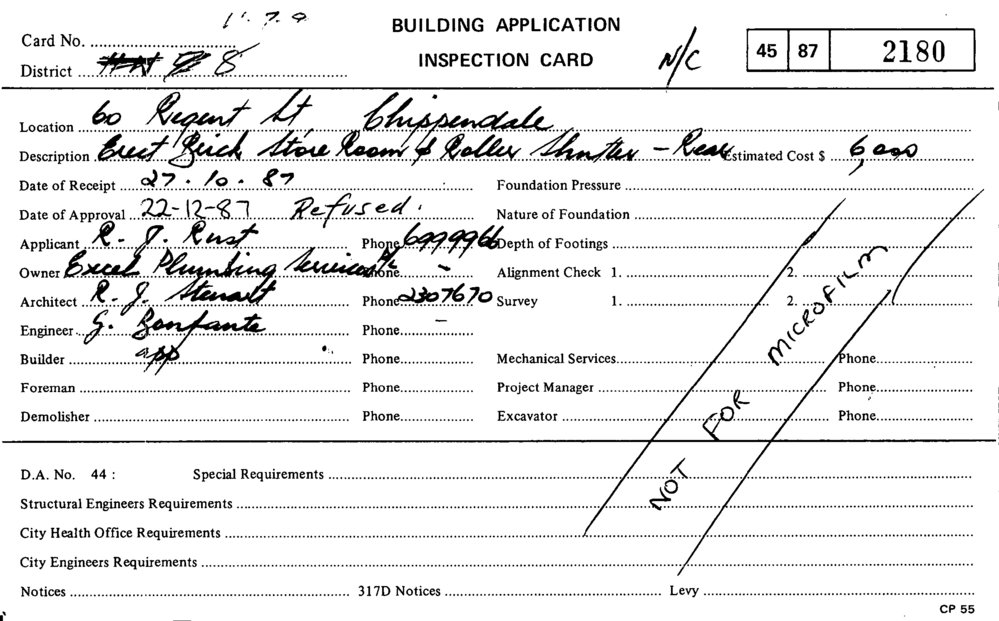 BUILDING APPLICATION
INSPECTION CARD
N/C
45 87 2180
Card No.
District 8
Location 60 Regent St Chippendale
Description Erect Brick Store Room & Roller Shutter - Rear Estimated Cost $ 6,000
Date of Receipt 27.10.87 Foundation Pressure
Date of Approval 22-12-87 Refused. Nature of Foundation
Applicant R. J. Rust Phone 6999966 Depth of Footings
Owner Excel Plumbing Services P/L Phone - Alignment Check 1. 2.
Architect R. J. Stewart Phone 2307670 Survey 1. 2.
Engineer G. Bonfante Phone -
Builder app Phone Mechanical Services Phone
Foreman Phone Project Manager Phone
Demolisher Phone Excavator Phone
NOT FOR MICROFILM
D.A. No. 44 : Special Requirements
Structural Engineers Requirements
City Health Office Requirements
City Engineers Requirements
Notices 317D Notices Levy
CP 55